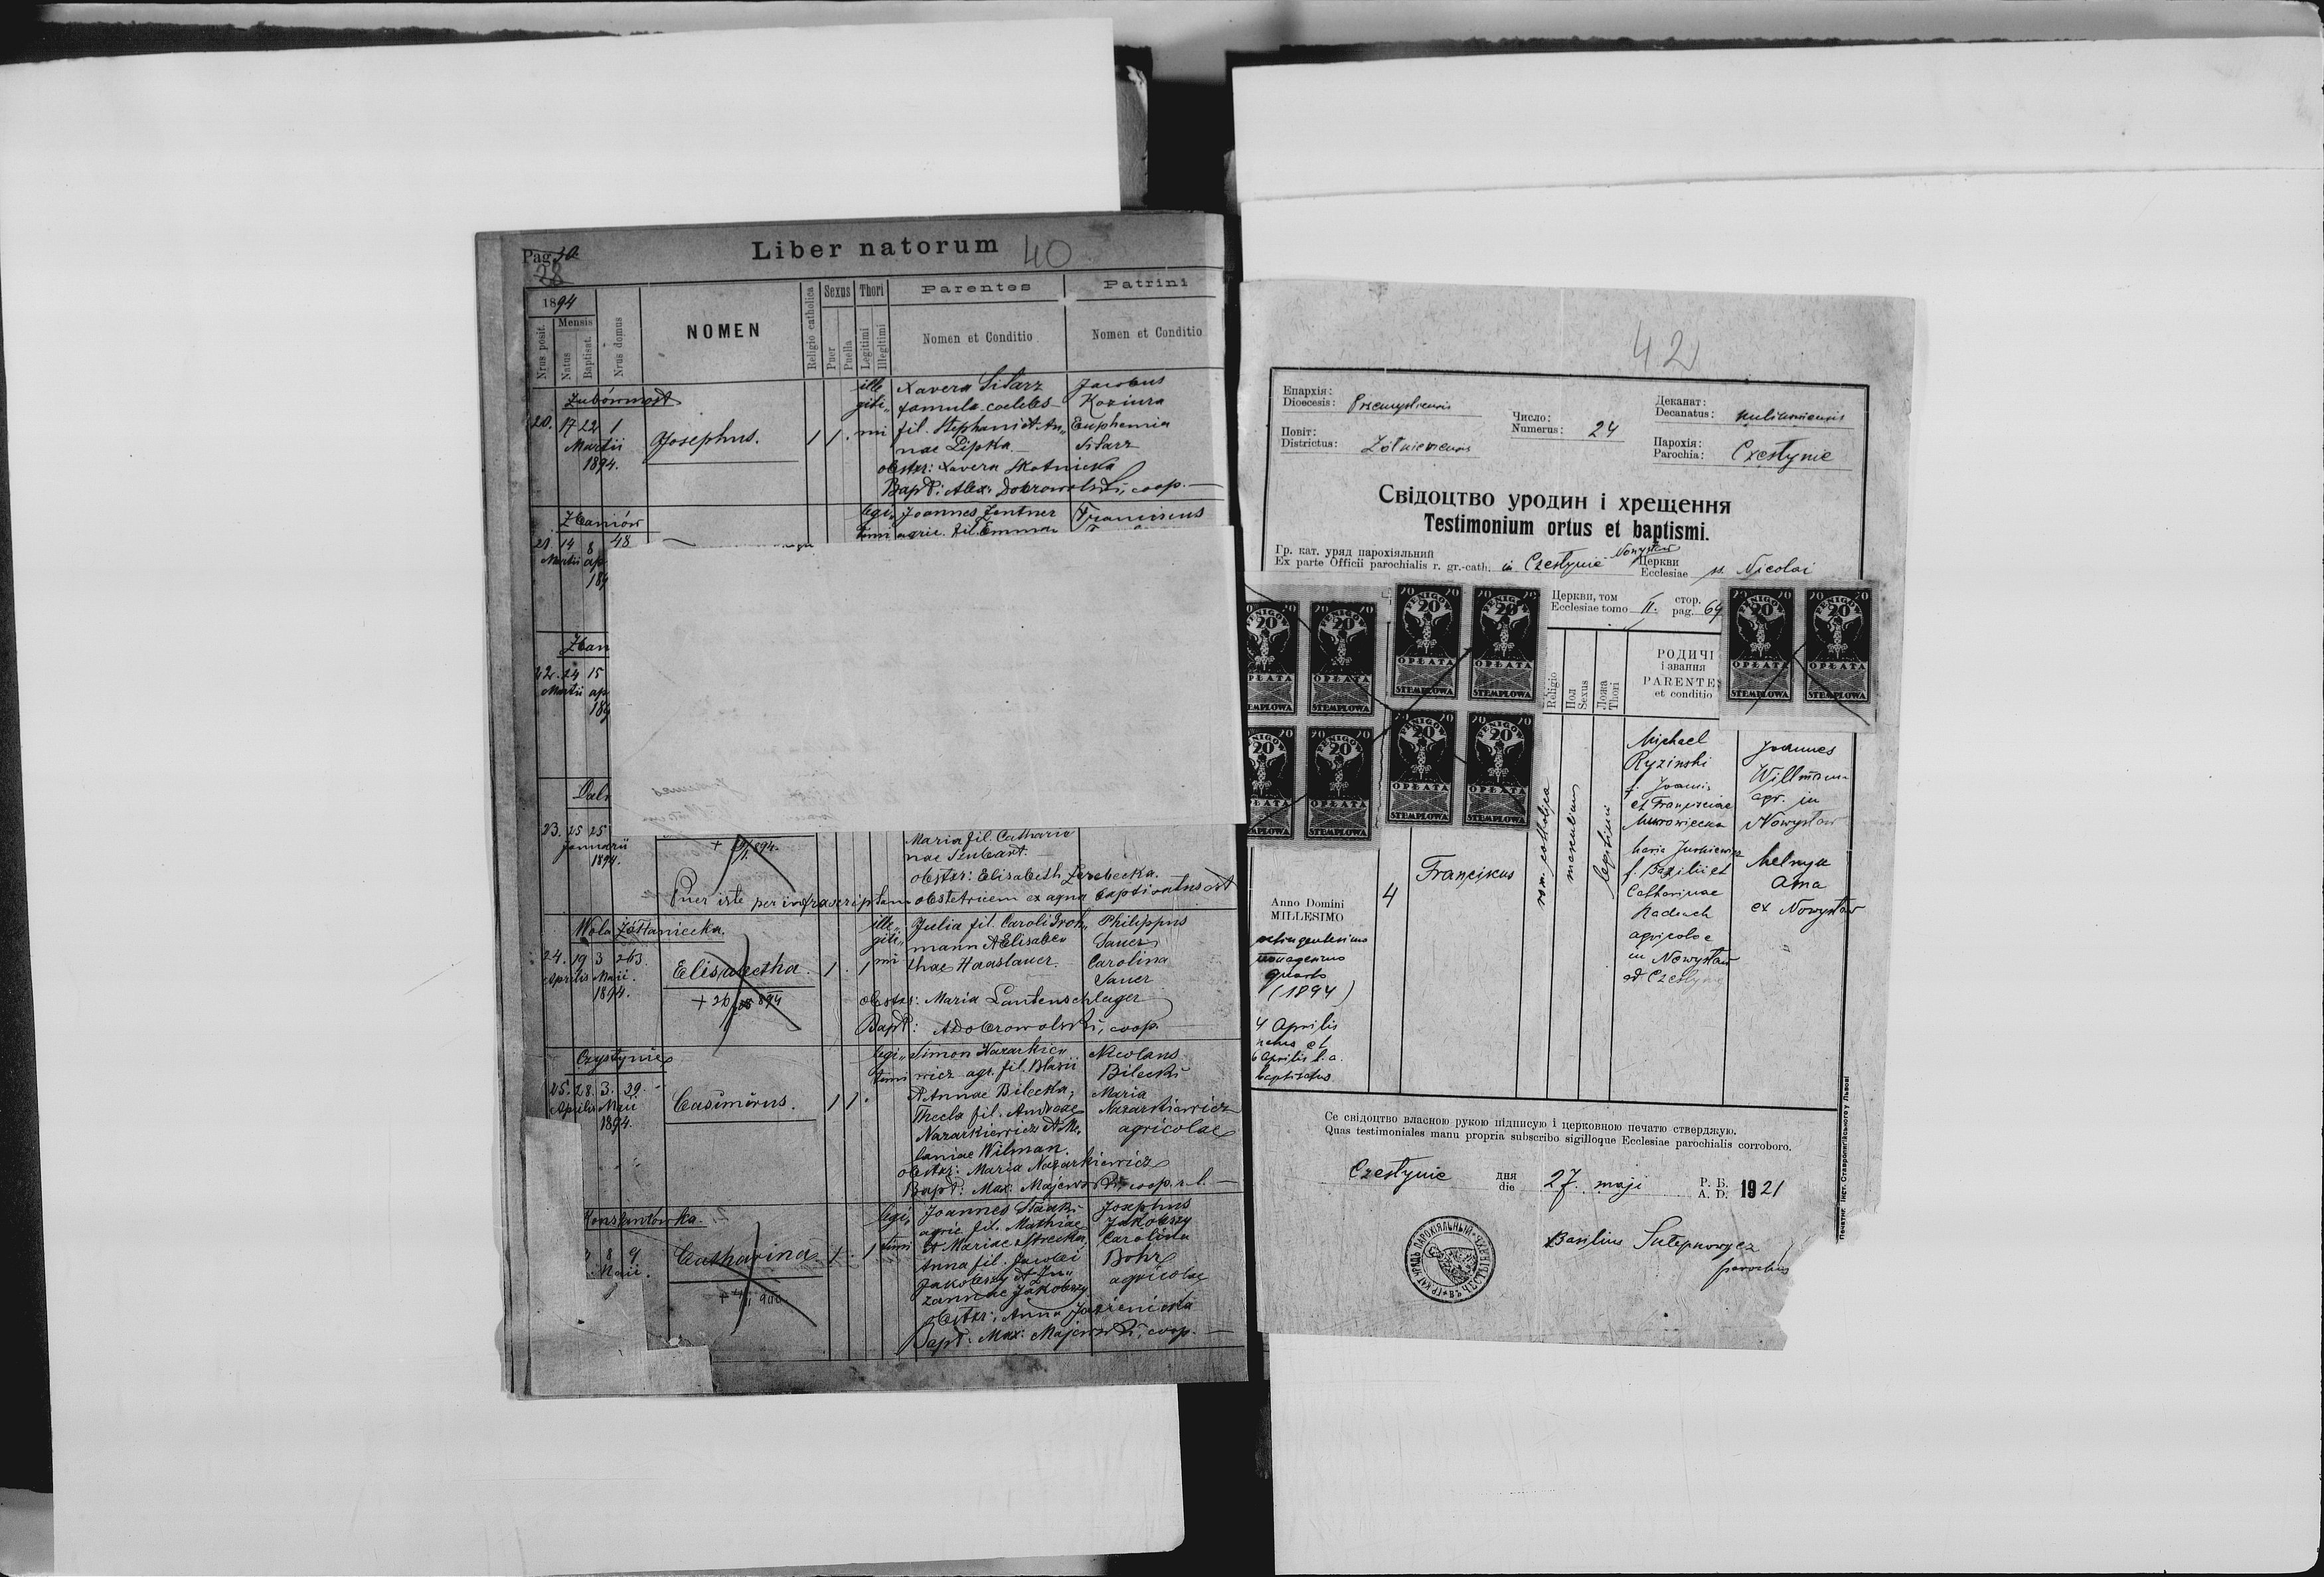 Pag. 30
28
Liber natorum
40
1894
Nrus posit.
Mensis
Natus
Baptisat.
Nrus domus
NOMEN
Religio catholica
Sexus
Puer
Puella
Thori
Legitimi
Illegitimi
Parentes
Nomen et Conditio
Patrini
Nomen et Conditio
20. 17 22 1
Martii
1894.
Josephus. 1 1.
ille
giti„
mi
Xavera Sitarz
famula coelebs
fil. Stephani et An„
nae Lipka
Jacobus
Koziura
Euphemia
Sitarz
obstxr: Xavera Skotnicka
Bapt: Alex: Dobrowolski, coop.
legi„
timi
Joannes Zentner
agric. fil. Emma
Franciscus
21. 14 8 48
Martii ap
189
22. 24 15
Martii ap
189
23. 25 25
Januarii
1894.
Maria fil. Cathari
nae Szubart.
obstxr: Elisabeth Zerebecka.
Puer iste per infrascriptam obstetricem ex aqua baptisatus est
Wola Żółtaniecka.
24. 19 3 263.
Aprilis Maii
1894.
Elisabetha. 1. 1
ille„
giti„
mi
Julia fil. Caroli Groh„
mann et Elisabe„
thae Haaslauer.
Philippus
Sauer
Carolina
Sauer
obstxr: Maria Lautenschlager
Bapt: A Dobrowolski, coop.
Czystynie
25. 28. 3. 29.
Aprilis Maii
1894.
Casimirus. 1 1.
legi„
timi
Simon Nazarkie„
wicz agr. fil. Blasii
et Annae Bilecka,
Thecla fil. Andreae
Nazarkiewicz et Me„
laniae Wilman.
Nicolaus
Bilecki
Maria
Nazarkiewicz
agricolae
obstxr: Maria Nazarkiewicz
Bapt: Max: Majewski coop. r. l.
Konstantówka.
8 9
Maii.
Catharina. 1. 1
legi„
timi
agric. fil. Mathiae
et Mariae
Anna fil. Jacobi
Jakobszy et Zu„
zannae Jakobszy
Josephus
Jakobszy
Carolina
Bohr
agricolae
obstxr: Anna
Bapt: Max: Majewski, coop.
42
Епархія:
Dioecesis: Przemysliensis
Повіт:
Districtus: Żółkiewiensis
Число:
Numerus: 24
Деканат:
Decanatus: Kulikoviensis
Парохія:
Parochia: Czestynie
Свідоцтво уродин і хрещення
Testimonium ortus et baptismi.
Гр. кат. уряд парохіяльний
Ex parte Officii parochialis r. gr.-cath. in Czestynie Nowystaw
Церкви
Ecclesiae st. Nicolai
Церкви, том
Ecclesiae tomo II.
стор.
pag. 69
20 FENIGÓW
OPŁATA
STEMPLOWA
Religio
Пол
Sexus
Ложа
Thori
РОДИЧІ
і звання
PARENTES
et conditio
Anno Domini
MILLESIMO
octingentesimo
nonagesimo
quarto
(1894)
4 Aprilis
natus et
6 Aprilis h. a.
baptisatus
4
Franciscus
rom. catholica
masculinus
legitimi
Michael
Ryzinski
f. Joannis
et Franciscae
Murowiecka
Maria Jurkiewicz
f. Basilii et
Catharinae
Kaduch
agricolae
in Nowystaw
ad Czestynie
Joannes
Willmann
agr. in
Nowystaw
Melnyk
Anna
ex Nowystaw
Се свідоцтво власною рукою підписую і церковною печатю стверджую.
Quas testimoniales manu propria subscribo sigilloque Ecclesiae parochialis corroboro.
Czestynie
дня
die 27. maji
Р. Б.
A. D. 1921
Basilius
parochus
Печатня Інст. Ставропигійського у Львові